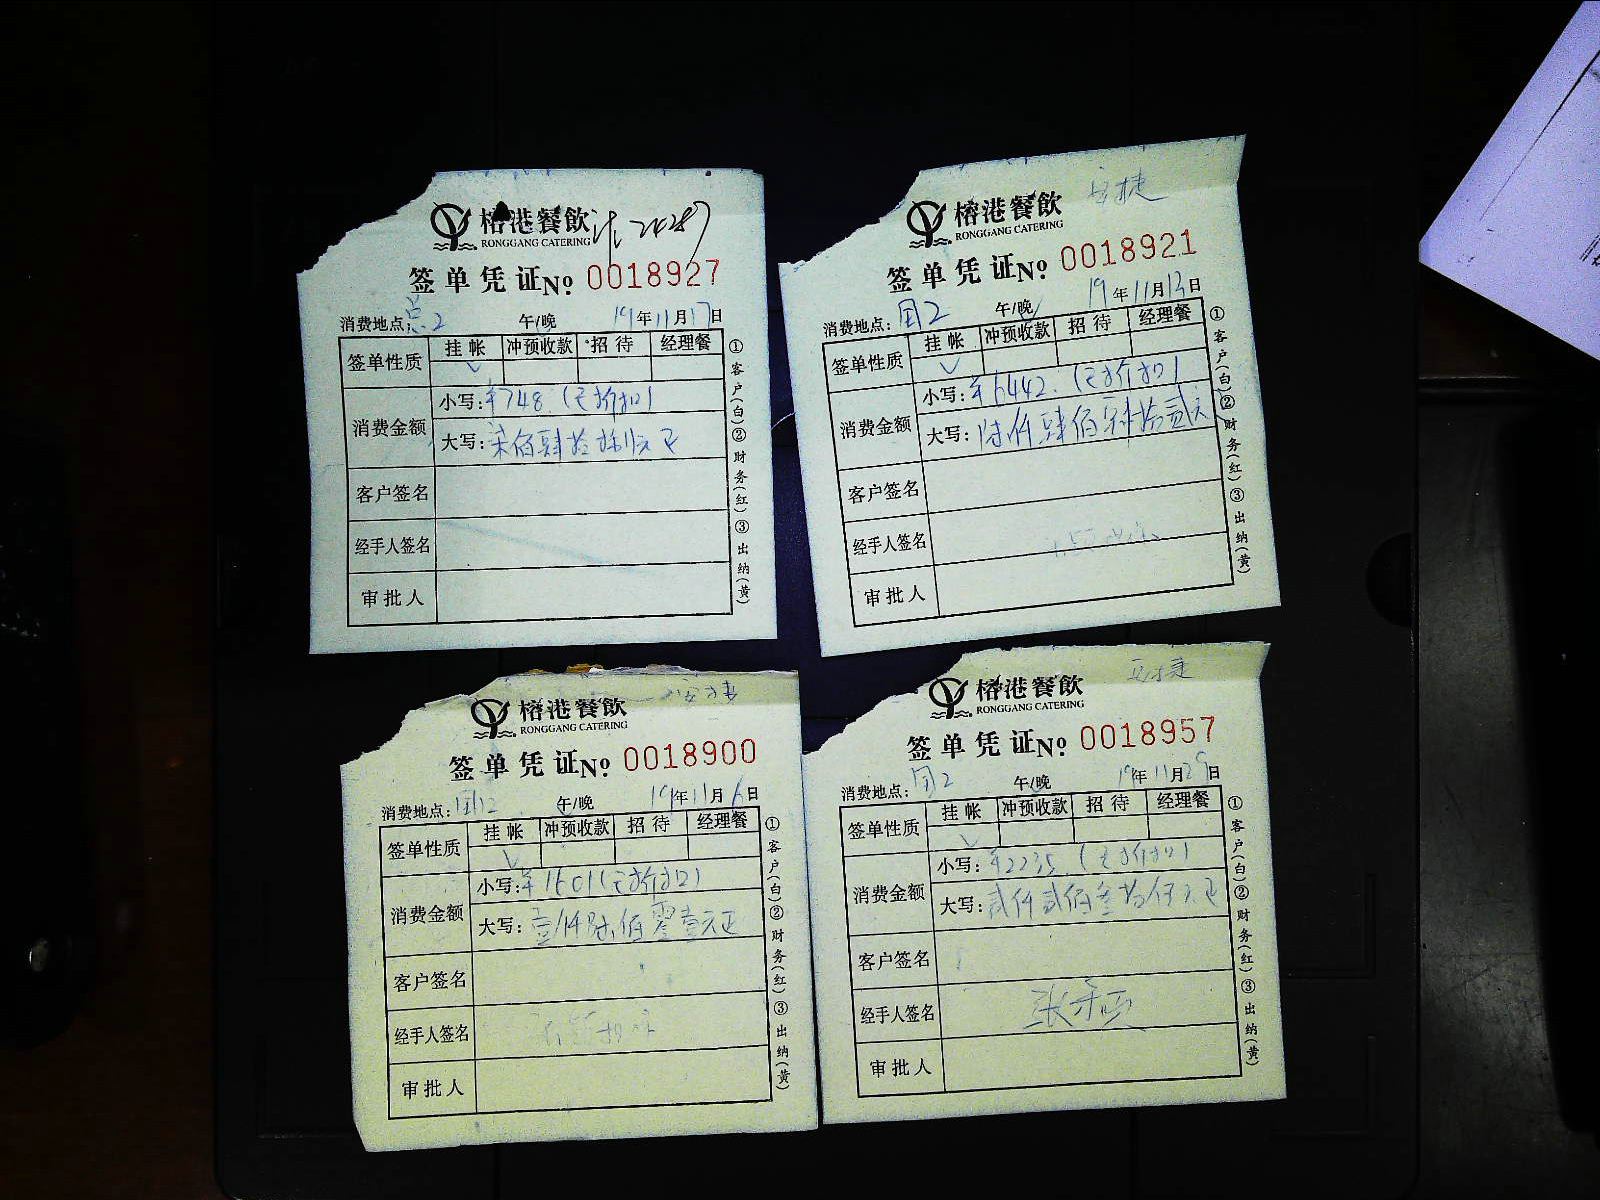 榕港餐飲
RONGGANG CATERING
签单凭证 No 0018927
消费地点: 总2 午/晚 19年11月17日
签单性质 挂帐 冲预收款 招待 经理餐
✓
消费金额 小写: ¥748.(已折扣)
大写: 柒佰肆拾捌元正
客户签名
经手人签名
审批人
①客户(白)②财务(红)③出纳(黄)
榕港餐飲
RONGGANG CATERING
签单凭证 No 0018921
消费地点: 国2 午/晚 19年11月13日
签单性质 挂帐 冲预收款 招待 经理餐
✓
消费金额 小写: ¥6442.(已折扣)
大写: 陆仟肆佰肆拾贰元
客户签名
经手人签名
审批人
①客户(白)②财务(红)③出纳(黄)
榕港餐飲
RONGGANG CATERING
签单凭证 No 0018900
消费地点: 国12 午/晚 19年11月6日
签单性质 挂帐 冲预收款 招待 经理餐
✓
消费金额 小写: ¥1601(已折扣)
大写: 壹仟陆佰零壹元正
客户签名
经手人签名
审批人
①客户(白)②财务(红)③出纳(黄)
榕港餐飲
RONGGANG CATERING
签单凭证 No 0018957
消费地点: 国2 午/晚 19年11月29日
签单性质 挂帐 冲预收款 招待 经理餐
✓
消费金额 小写: ¥2235.(已折扣)
大写: 贰仟贰佰叁拾伍元正
客户签名
经手人签名
审批人
①客户(白)②财务(红)③出纳(黄)